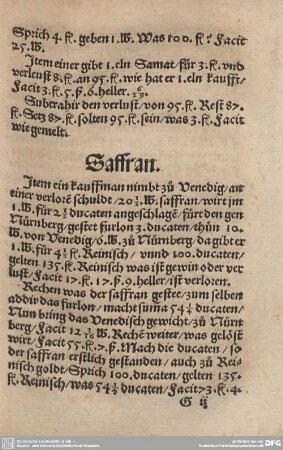 Sprich 4. fl. geben 1. ℔. Was 100. fl.? Facit
25. ℔.
Item einer gibt 1. eln Samat/ für 3. fl. vnd
verleust 8. fl. an 95. fl. wie hat er 1. eln kaufft/
Facit 3. fl. 5. ß. 6. heller.
Subtrahir den verlust/ von 95. fl. Rest 87.
fl. Setz 87. fl. solten 95. fl. sein/ was 3. fl. Facit
wie gemelt.
Saffran.
Item ein kauffman nimbt zů Venedig/ an
einer verlorē schulde/ 20 ℔. saffran/ wirt jm
1. ℔. für 2 ducaten angeschlagē/ fürt den gen
Nürnberg/ gestet furlon 3. ducaten/ thůn 10.
℔. von Venedig/ 6. ℔. zů Nürnberg/ da gibt er
1. ℔. für 4 fl. Reinisch/ vnnd 100. ducaten/
gelten 135. fl. Reinisch was ist gewin oder ver
lust/ Facit 17. fl. 17. ß. 9. heller/ ist verloren.
Rechen was der saffran gestee/ zum selben
addir das furlon/ mache suma 54 ducaten/
Nun bring das Venedisch gewicht/ zů Nürn
berg/ Facit 12 ℔. Rechē weiter/ was gelöst
wirt/ Facit 55. fl. 7. ß. Mach die ducaten/ so
der saffran erstlich gestanden/ auch zů Rei-
nisch goldt/ Sprich 100. ducaten/ gelten 135.
fl. Reinisch/ was 54 ducaten/ Facit 73. fl. 4.
G ij